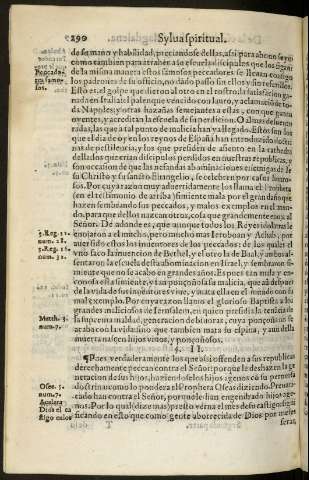 290 Sylua spiritual.
de su mano y habilidad, preciandose dellas, assi para ahorro suyo
como tambien para atraher a so escuela discipulos que los sigan
de la misma manera estos famosos peccadores se lleuan consigo
los padrones de su officio, no dando passo sin ellos y sin referirlos.
Esto es, el golpe que dieron al otro en el rostro, la satisfacion ga-
nada
da Napoles, y otras hazañas semejantes a estas, con que ganan
oyentes, y acreditan la escuela de superdicion. O almas desuentu-
radas, las que a tal punto de malicia han ya llegado. Estos son los
que el dia de oy en los reynos de España han introduzido doctri-
nas de pestilencia, y los que presiden de asiento en la cathedra
dellas
son occasion de que las nefandas abominaciones en
su Christo y su sancto Euangelio, se celebren por casos famo-
sos. Por cuya razon muy aduertidamente los llama el Propheta
en el testimonio de arriba simiente mala por el gran daño que
hazen sembrando sus peccados, y malos exemplos en el mun-
do, para que dellos nazcan otros, cosa que grandemente enoja al
Señor. De adonde es, que aunque todos los Reyes idolatras le
enojaron a el mucho, pero mucho mas Ieroboan y Achab, por
auer sido estos los inuentores de los peccados: de los quales el
vno saco la inuencion de Berhel, y el otro la de Baal, y ambos al-
sentaron la escuela desta abominacion en Israel, y sembraron si-
miente que no se acabo en grandes años. Es pues tan mala y en-
conada esta simiente, y tan ponçoñosa su malicia, que aũ despues
de la vida de sus inquisidores viue, y mata ella en el mundo con su
mal exemplo. Por cuya razon llamo el glorioso Baptista a los
grandes maliciosos de Ierusalem, en quien presidia la tenida de
la suprema maldad, generacion de biuoras, cuya ponçoña no se
acaba con la vida: sino que tambien mata su espina, y aun della
muerta nascen hijos viuos, y ponçoñosos.
§. II.
¶ Pues verdaderamente los que assi offenden a sus republicas
derechamente peccan contra el Señor: porque le deshazen la ge
neracion de sus hijos, haziendolos hijos agenos cõ su peruersa
doctrina: como lo pondera el Propheta Oseas diziendo. Preuari-
cado han contra el Señor, porque le han engendrado hijos age-
nos. Por lo qual (dize mas) presto verna el mes de su castigo, signi
ficando en esto que como gente aborrecida de Dios por meses
seran
Peccado-
res famo-
sos.
3. Reg. 12.
num. 28.
3. Reg. 16.
num. 32.
Matth. 3.
num. 7.
Osee. 5.
num. 7.
Acelera
Dios el ca
stigo a los